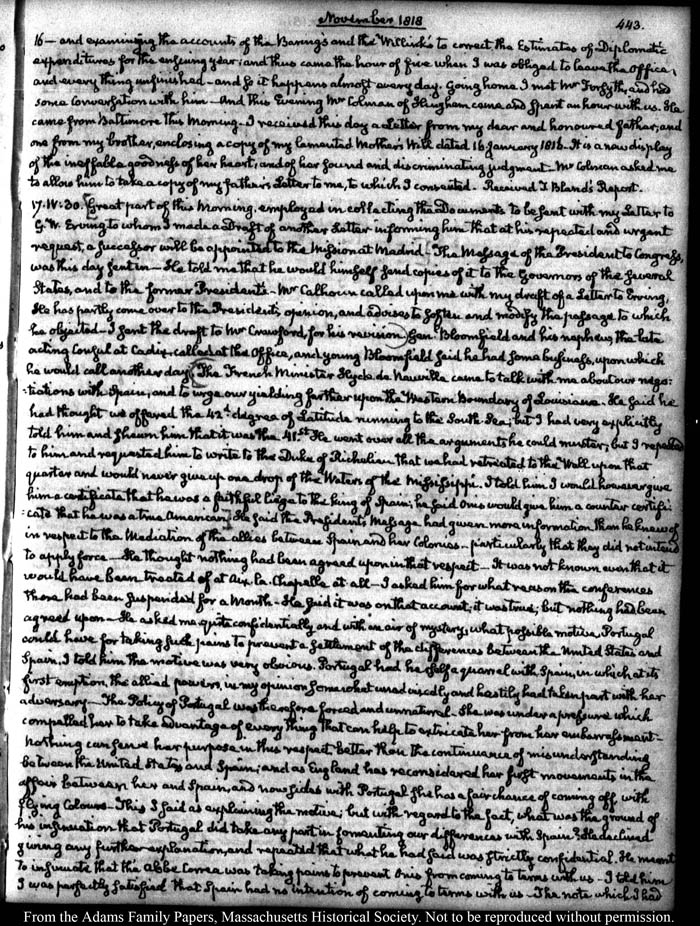 November 1818
443.
16 — and examining the accounts of the Barings and the Willink's to correct the Estimates of Diplomatic
expenditures for the ensuing year; and thus came the hour of five when I was obliged to leave the Office,
and every thing unfinished — and so it happens almost every day. Going home I met Mr Forsyth, and had
some conversation with him — And this Evening Mr Colman of Hingham, came and spent an hour with us. He
came from Baltimore this Morning. I received this day a Letter from my dear and honoured father, and
one from my brother, enclosing a copy of my lamented Mother's Will dated 16 January 1816. It is a new display
of the ineffable goodness of her heart, and of her sound and discriminating judgment — Mr Colman asked me
to allow him to take a copy of my father's Letter to me, to which I consented. Received T. Bland's Report.
17. IV:30. Great part of this Morning, employed in collecting the Documents to be sent with my Letter to
G. W. Erving to whom I made a Draft of another Letter informing him that at his repeated and urgent
request, a successor will be appointed to the Mission at Madrid — The Message of the President to Congress,
was this day sent in — He told me that he would himself send copies of it to the Governors of the several
States, and to the former Presidents — Mr Calhoun called upon me with my draft of a Letter to Erving.
He has partly come over to the President's opinion, and advises to soften and modify the passage to which
he objected — I sent the draft to Mr Crawford, for his revision. Gen. Bloomfield and his nephew, the late
acting Consul at Cadiz, called at the Office, and young Bloomfield said he had some business, upon which
he would call another day. The French Minister Hyde de Neuville came to talk with me about our nego-
:tiations with Spain, and to urge our yielding farther upon the Western Boundary of Louisiana — He said he
had thought we offered the 42d degree of Latitude running to the South Sea; but I had very explicitly
told him and shewn him that it was the 41.st He went over all the arguments he could muster; but I repeated
to him and requested him to write to the Duke of Richelieu that we had retreated to the Wall upon that
quarter and would never give up one drop of the Waters of the Mississippi. I told him I would however give
him a certificate that he was a faithful liege to the king of Spain; he said Onis would give him a counter certifi-
:cate that he was a true American. He said the President's Message had given more information than he knew of
in respect to the Mediation of the allies between Spain and her Colonies — particularly that they did not intend
to apply force — He thought nothing had been agreed upon in that respect — It was not known even that it
would have been treated of at Aix la Chapelle at all — I asked him for what reason the conferences
there had been suspended for a Month — He said it was on that account, it was true; but nothing had been
agreed upon — He asked me quite confidentially and with an air of mystery, what possible motive, Portugal
could have for taking such pains to prevent a settlement of the differences between the United States and
Spain. I told him the motive was very obvious. Portugal had herself a quarrel with Spain, in which at its
first eruption, the allied powers, in my opinion somewhat unadvisedly and hastily had taken part with her
adversary — The Policy of Portugal was therefore forced and unnatural. She was under a pressure which
compelled her to take advantage of every thing that can help to extricate her from her embarrassment —
Nothing can serve her purpose in this respect better than the continuance of misunderstanding
between the United States and Spain; and as England has reconsidered her first movements in the
affair between her and Spain, and now sides with Portugal she has a fair chance of coming off with
flying Colours — This I said as explaining the motive; but with regard to the fact, what was the ground of
his insinuation that Portugal did take any part in fomenting our differences with Spain? He declined
giving any further explanation, and repeated that what he had said was strictly confidential. He meant
to insinuate that the Abbe Correa was taking pains to prevent Onis from coming to terms with us — I told him
I was perfectly satisfied that Spain had no intention of coming to terms with us — The note which I had
From the Adams Family Papers, Massachusetts Historical Society. Not to be reproduced without permission.